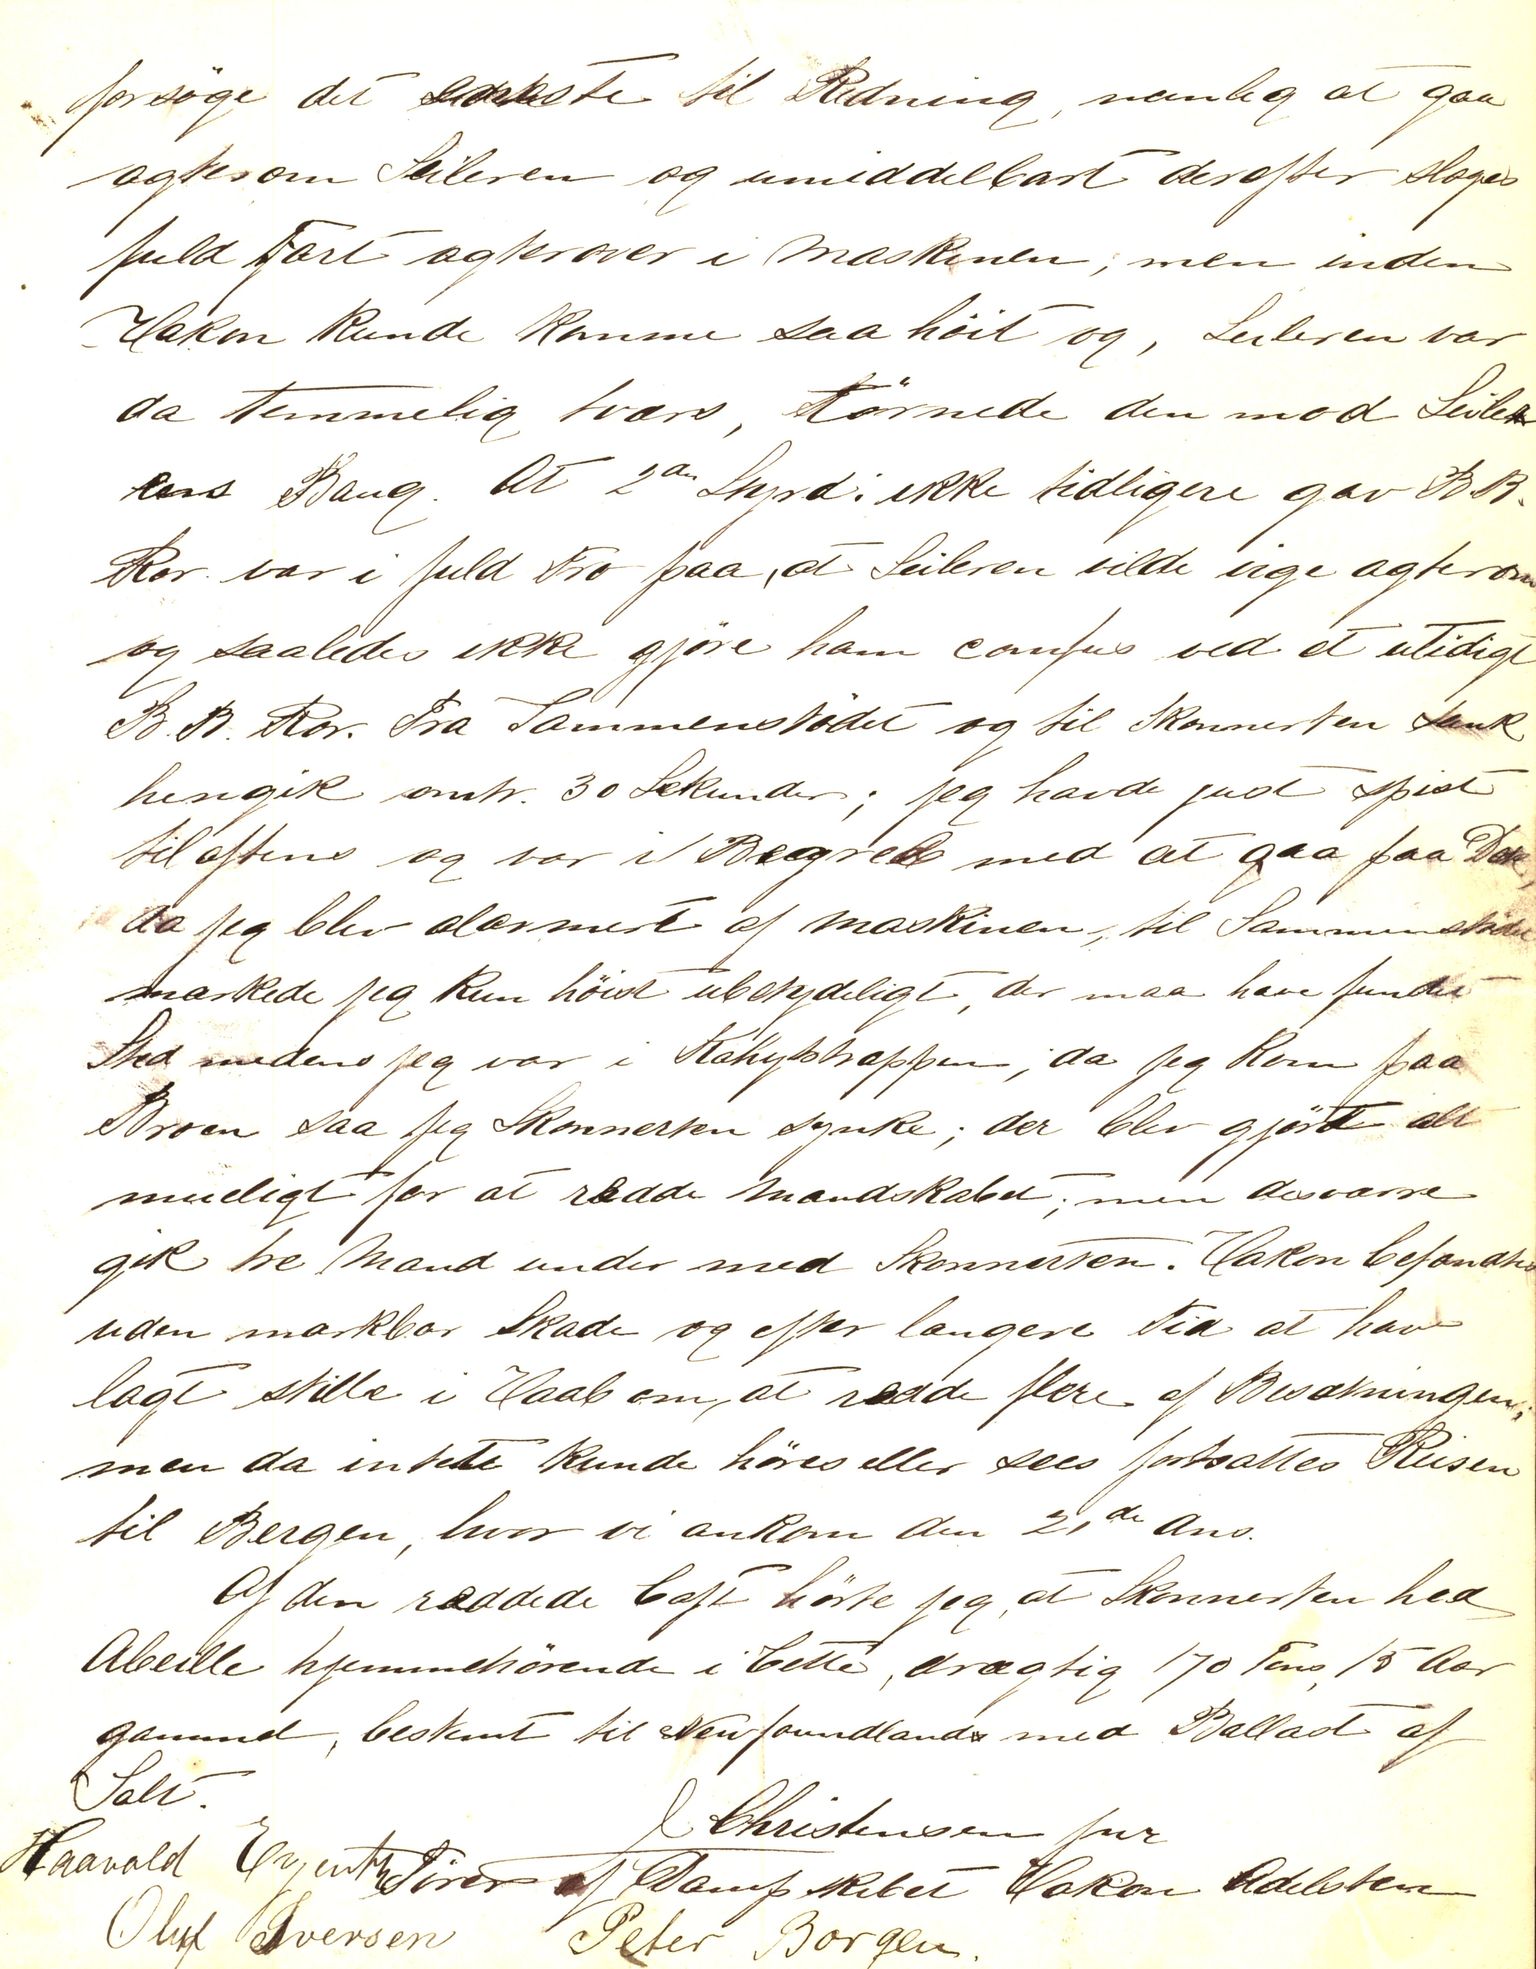 forsöge det sidste til Redning, nemlig at gaa
agterom Seileren og umiddelbart derefter sloges
fuld Fart agterover i Maskinen, men inden
Hakon kunde komme saa höit og, Seileren var
da temmelig tvers, törnede den mod Seiler
ens Baug. At 2den Styrd: ikke tidligere gav B.B.
Ror. var i fuld Tro paa, at Seileren vilde vige agterom
og saaledes ikke gjöre ham confus ved et utidigt
B.B. Ror. Fra Sammenstödet og til Skonnerten sank
hengik omtr. 30 Sekunder; jeg havde just spist
tilaftens og var i Begreb med at gaa paa Dæk,
da jeg blev alarmert af Maskinen, til Sammenstödet
mærkede jeg kun höist ubetydeligt, der maa have fundet
Sted medens jeg var i Kahytstrappen, da jeg kom paa
Broen saa jeg Skonnerten synke; der blev gjört alt
mueligt for at redde Mandskabet; men desværre
gik tre Mand under med Skonnerten. Hakon befandtes
uden mærkbar Skade og efter længere Tid at have
lagt stille i Haab om, at redde flere af Besætningen;
men da intet kunde höres eller sees fortsattes Reisen
til Bergen, hvor vi ankom den 21de ds.
Af den reddede Capt hörte jeg, at Skonnerten hed
Abeille hjemmehörende i Cette, drægtig 170 Tons, 15 Aar
gammel, bestemt til Newfoundland med Ballast af
Salt.
J Christensen jur
Haavald
Förer af Dampskibet Hakon Adelsten
Oluf Iversen Peter Borgen.